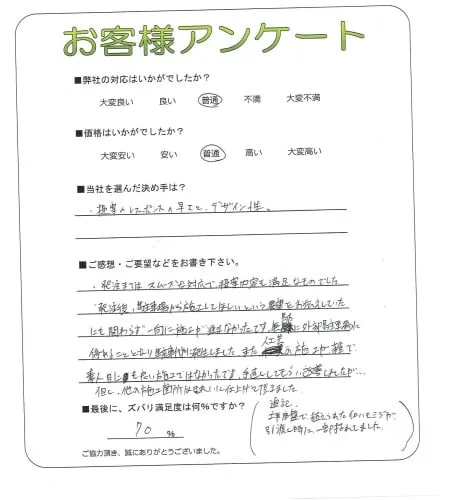 お客様アンケート
■弊社の対応はいかがでしたか？
大変良い 良い 普通 不満 大変不満
■価格はいかがでしたか？
大変安い 安い 普通 高い 大変高い
■当社を選んだ決め手は？
・提案のレスポンスの早さと、デザイン性。
■ご感想・ご要望などをお書き下さい。
・発注まではスムーズな対応で、提案内容も満足なものでした
発注後、駐車場から施工してほしいという要望をお伝えしていた
にも関わらず一向に施工が進まなかったです。 に外部駐車場に
停めることとなり駐車代が発生しました。また人工芝の施工が雑で
素人目にも 施工ではなかったです。手直ししてもらい改善しましたが…
但し、他の施工箇所はきれいに仕上げて頂きました。
■最後に、ズバリ満足度は何％ですか？
70 ％
追記
植えられたイロハモミジが、
引渡し時に、一部折れてました。
ご協力頂き、誠にありがとうございました。